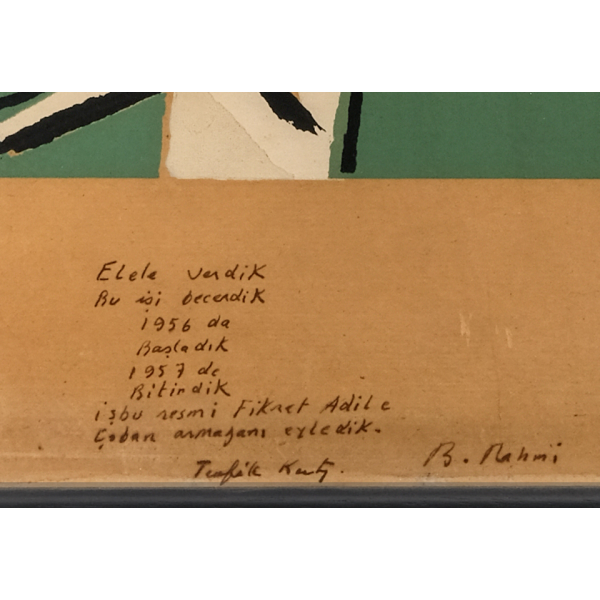 Elele verdik
Bu işi becerdik
1956 da
Başladık
1957 de
Bitirdik
işbu resmi Fikret Adil e
Çoban armağanı eyledik.
Tevfik
B. Rahmi